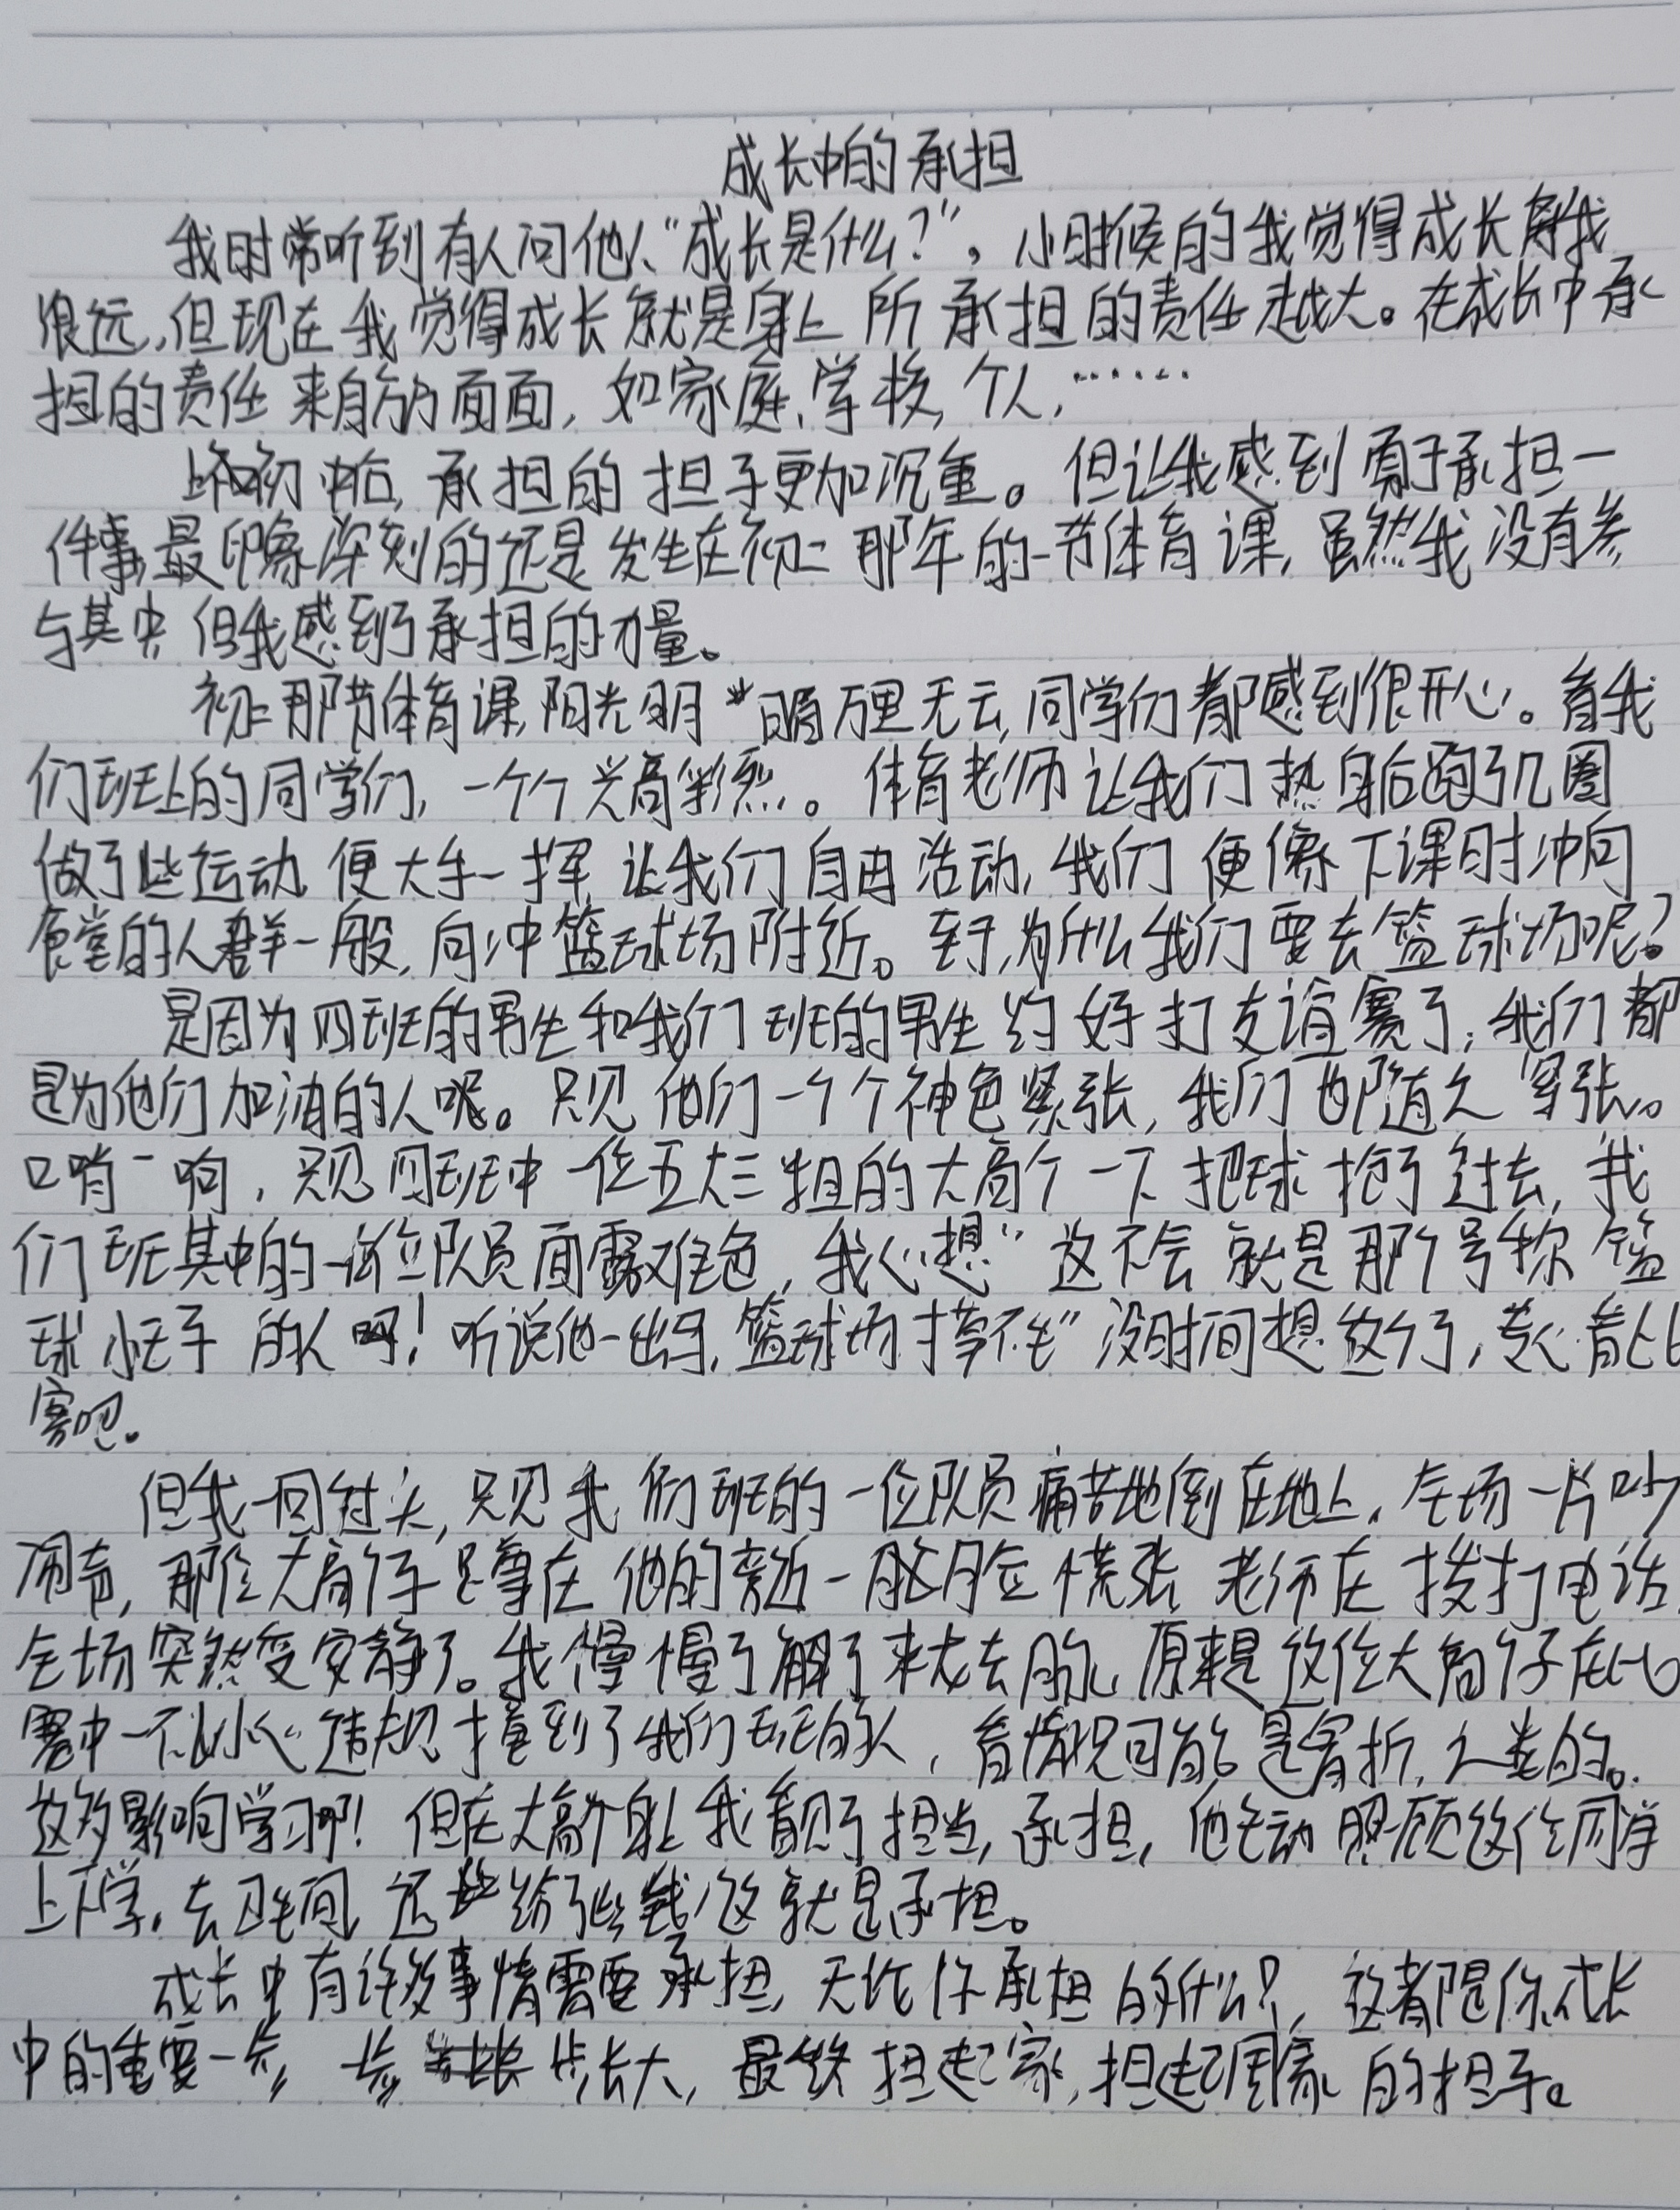 成长中的承担
我时常听到有人问他人“成长是什么？”，小时候的我觉得成长离我
很远，但现在我觉得成长就是身上所承担的责任越大。在成长中承
担的责任来自方方面面，如家庭、学校，个人，……
上初中后，承担的担子更加沉重。但让我感到勇于承担一
件事，最印象深刻的还是发生在初二那年的一节体育课，虽然我没有参
与其中，但我感到了承担的力量。
初二那节体育课，阳光明媚万里无云，同学们都感到很开心。看我
们班上的同学们，一个个兴高彩烈。体育老师让我们热身后跑了几圈
做了些运动，便大手一挥，让我们自由活动，我们便像下课时冲向
食堂的人群一般，向冲篮球场附近。至于，为什么我们要去篮球场呢？
是因为四班的男生和我们班的男生约好打友谊赛了，我们都
是为他们加油的人呢。只见他们一个个神色紧张，我们也随之紧张。
口哨一响，只见四班中一位五大三粗的大高个一下把球抢了过去，我
们班其中的一位队员面露难色，我心想“这不会就是那个号称篮
球小王子的人啊！听说他一出手，篮球场才拿不住”没时间想这个了，专心看比
赛吧。
但我一回过头，只见我们班的一位队员痛苦地倒在地上，全场一片吵
闹声，那位大高个子只蹲在他的旁边一脸慌张，老师在拨打电话，
全场突然变安静了。我慢慢了解了来龙去脉，原来是这位大高个子在比
赛中一不小心违规撞到了我们班的人，看情况可能是骨折之类的。
这多影响学习啊！但在大高个身上我看见了担当，承担，他主动照顾这位同学
上下学，去卫生间，还给了些钱，这就是承担。
成长中有许多事情需要承担，无论你承担的什么？，这都是你成长
中的重要一步，一步步长大，最终担起家，担起国家的担子。